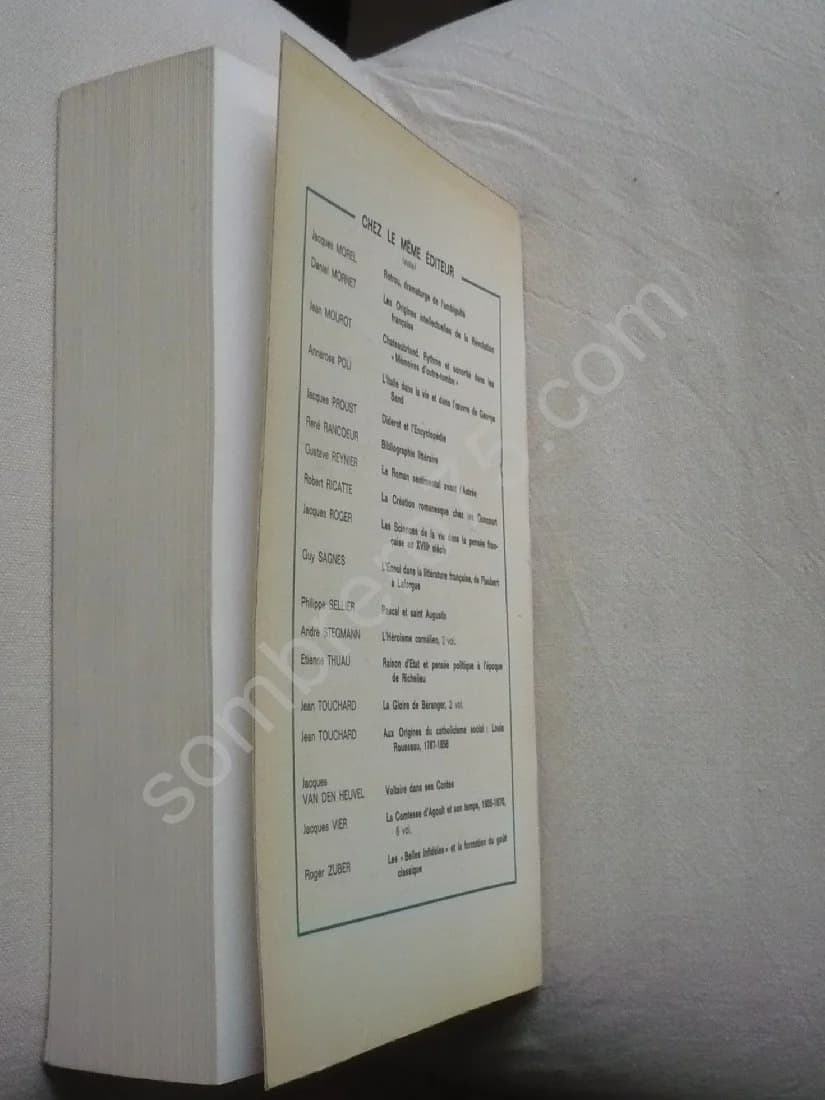 CHEZ LE MÊME ÉDITEUR
(extrait)
Jacques MOREL Rotrou, dramaturge de l'ambiguïté
Daniel MORNET Les Origines intellectuelles de la Révolution
française
Jean MOUROT Chateaubriand. Rythme et sonorité dans les
« Mémoires d'outre-tombe »
Annarosa POLI L'Italie dans la vie et dans l'œuvre de George
Sand
Jacques PROUST Diderot et l'Encyclopédie
René RANCŒUR Bibliographie littéraire
Gustave REYNIER Le Roman sentimental avant l'Astrée
Robert RICATTE La Création romanesque chez les Goncourt
Jacques ROGER Les Sciences de la vie dans la pensée fran-
çaise au XVIIIe siècle
Guy SAGNES L'Ennui dans la littérature française, de Flaubert
à Laforgue
Philippe SELLIER Pascal et saint Augustin
André STEGMANN L'Héroïsme cornélien, 2 vol.
Etienne THUAU Raison d'Etat et pensée politique à l'époque
de Richelieu
Jean TOUCHARD La Gloire de Béranger, 2 vol.
Jean TOUCHARD Aux Origines du catholicisme social : Louis
Rousseau, 1787-1856
Jacques
VAN DEN HEUVEL Voltaire dans ses Contes
Jacques VIER La Comtesse d'Agoult et son temps, 1805-1876,
6 vol.
Roger ZUBER Les « Belles Infidèles » et la formation du goût
classique
sombrero75.com